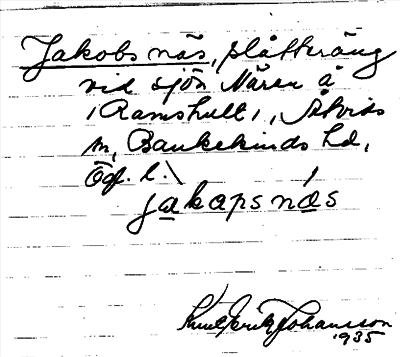 Jakobs näs, slåtteräng
vid sjön Nären å
Ramshult, Åtvids
sn, Bankekinds hd,
Ög. l.
jakapsnäs
Knut Erik Johansson
1935